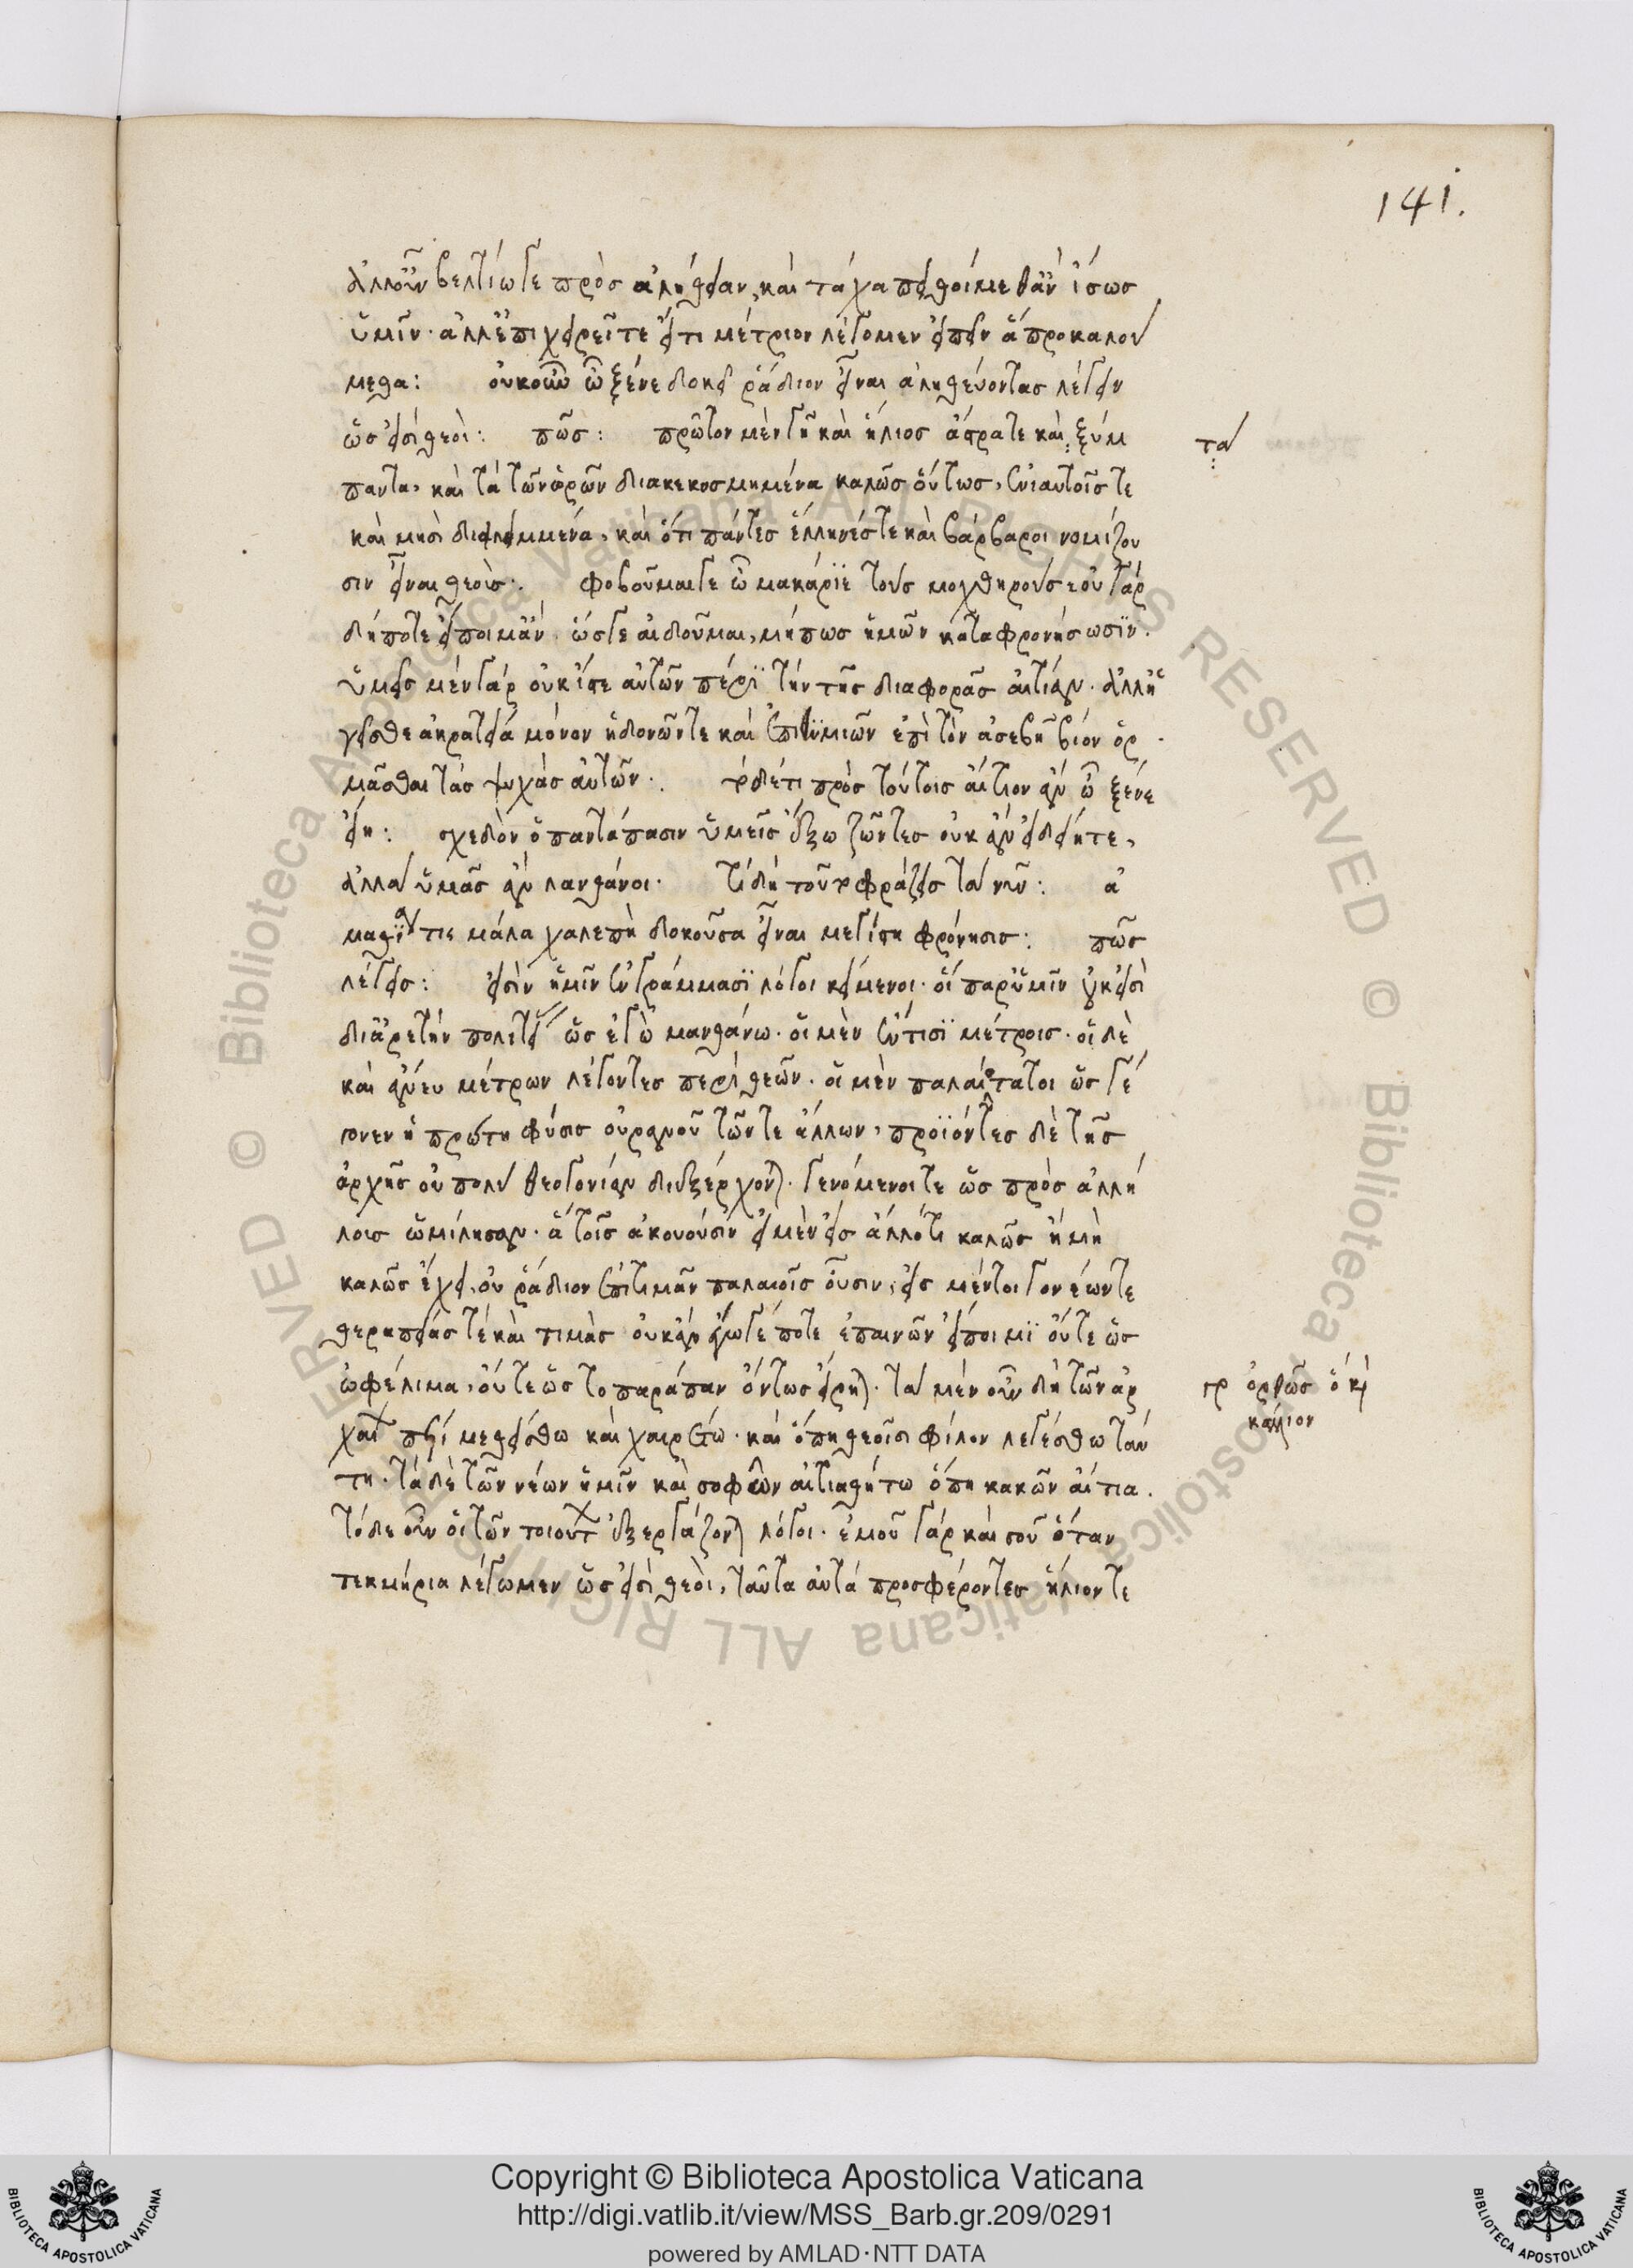 141.
ἀλλ' οὖν βελτίω γε πρὸς ἀλήθειαν, καὶ τάχα πειθοίμεθ' ἂν ἴσως
ὑμῖν. ἀλλ' ἐπιχειρεῖτε εἴ τι μέτριον λέγομεν εἰπεῖν ἃ προκαλού
μεθα: οὐκοῦν ὦ ξένε δοκεῖ ῥάδιον εἶναι ἀληθεύοντας λέγειν
ὡς εἰσὶ θεοί: πῶς: πρῶτον μὲν γῆ καὶ ἥλιος ἄστρα τε καὶ ξύμ
τὰ
παντα, καὶ τὰ τῶν ὡρῶν διακεκοσμημένα καλῶς οὕτως, ἐνιαυτοῖς τε
καὶ μησὶ διειλημμένα, καὶ ὅτι πάντες ἕλληνές τε καὶ βάρβαροι νομίζου
σιν εἶναι θεούς: φοβοῦμαί γε ὦ μακάριε τοὺς μοχθηρούς· οὐ γάρ
δήποτε εἴποιμ' ἂν ὥς γε αἰδοῦμαι, μήπως ἡμῶν καταφρονήσωσιν.
ὑμεῖς μὲν γὰρ οὐκ ἴστε αὐτῶν πέρι τὴν τῆς διαφορᾶς αἰτίαν. ἀλλ' ἡ
γεῖσθε ἀκρατείᾳ μόνον ἡδονῶν τε καὶ ἐπιθυμιῶν ἐπὶ τὸν ἀσεβῆ βίον ὁρ
μᾶσθαι τὰς ψυχὰς αὐτῶν. τὸ δέ τι πρὸς τούτοις αἴτιον ἂν ὦ ξένε
εἴη: σχεδὸν ὃ παντάπασιν ὑμεῖς ἔξω ζῶντες οὐκ ἂν εἰδείητε,
ἀλλὰ ὑμᾶς ἂν λανθάνοι. τί δὴ τοῦτο φράζεις τὰ νῦν: ἀ
μαθία τις μάλα χαλεπὴ δοκοῦσα εἶναι μεγίστη φρόνησις: πῶς
λέγεις: εἰσὶν ἡμῖν ἐν γράμμασι λόγοι κείμενοι. οἳ παρ' ὑμῖν οὐκ εἰσὶ
δι' ἀρετὴν πολιτείας ὡς ἐγὼ μανθάνω. οἱ μὲν ἔν τισι μέτροις. οἱ δὲ
καὶ ἄνευ μέτρων λέγοντες περὶ θεῶν. οἱ μὲν παλαιότατοι ὡς γέ
γονεν ἡ πρώτη φύσις οὐρανοῦ τῶν τε ἄλλων, προϊόντες δὲ τῆς
ἀρχῆς οὐ πολὺ θεογονίαν διεξέρχονται. γενόμενοί τε ὡς πρὸς ἀλλή
λους ὡμίλησαν. ἃ τοῖς ἀκούουσιν εἰ μὲν εἰς ἄλλο τι καλῶς ἢ μὴ
καλῶς ἔχει, οὐ ῥάδιον ἐπιτιμᾶν παλαιοῖς οὖσιν, εἰς μέντοι γονέων τε
θεραπείας τε καὶ τιμὰς οὐκ ἂν ἔγωγέ ποτε ἐπαινῶν εἴποιμι οὔτε ὡς
ὠφέλιμα, οὔτε ὡς τοπαράπαν ὄντως εἴρηται. τὰ μὲν οὖν δὴ τῶν ἀρ
γρ ὀρθῶς ὃ καὶ
κάλλιον
χαίων πέρι μεθείσθω καὶ χαιρέτω. καὶ ὅπῃ θεοῖσι φίλον λεγέσθω ταύ
τῃ. τὰ δὲ τῶν νέων ἡμῖν καὶ σοφῶν αἰτιαθήτω ὅπη κακῶν αἴτια.
τόδε οὖν οἱ τῶν τοιούτων ἐξεργάζονται λόγοι. ἐμοῦ γὰρ καὶ σοῦ ὅταν
τεκμήρια λέγωμεν ὡς εἰσὶ θεοί, ταῦτα αὐτὰ προσφέροντες ἥλιόν τε
Copyright © Biblioteca Apostolica Vaticana
http://digi.vatlib.it/view/MSS_Barb.gr.209/0291
powered by AMLAD·NTT DATA